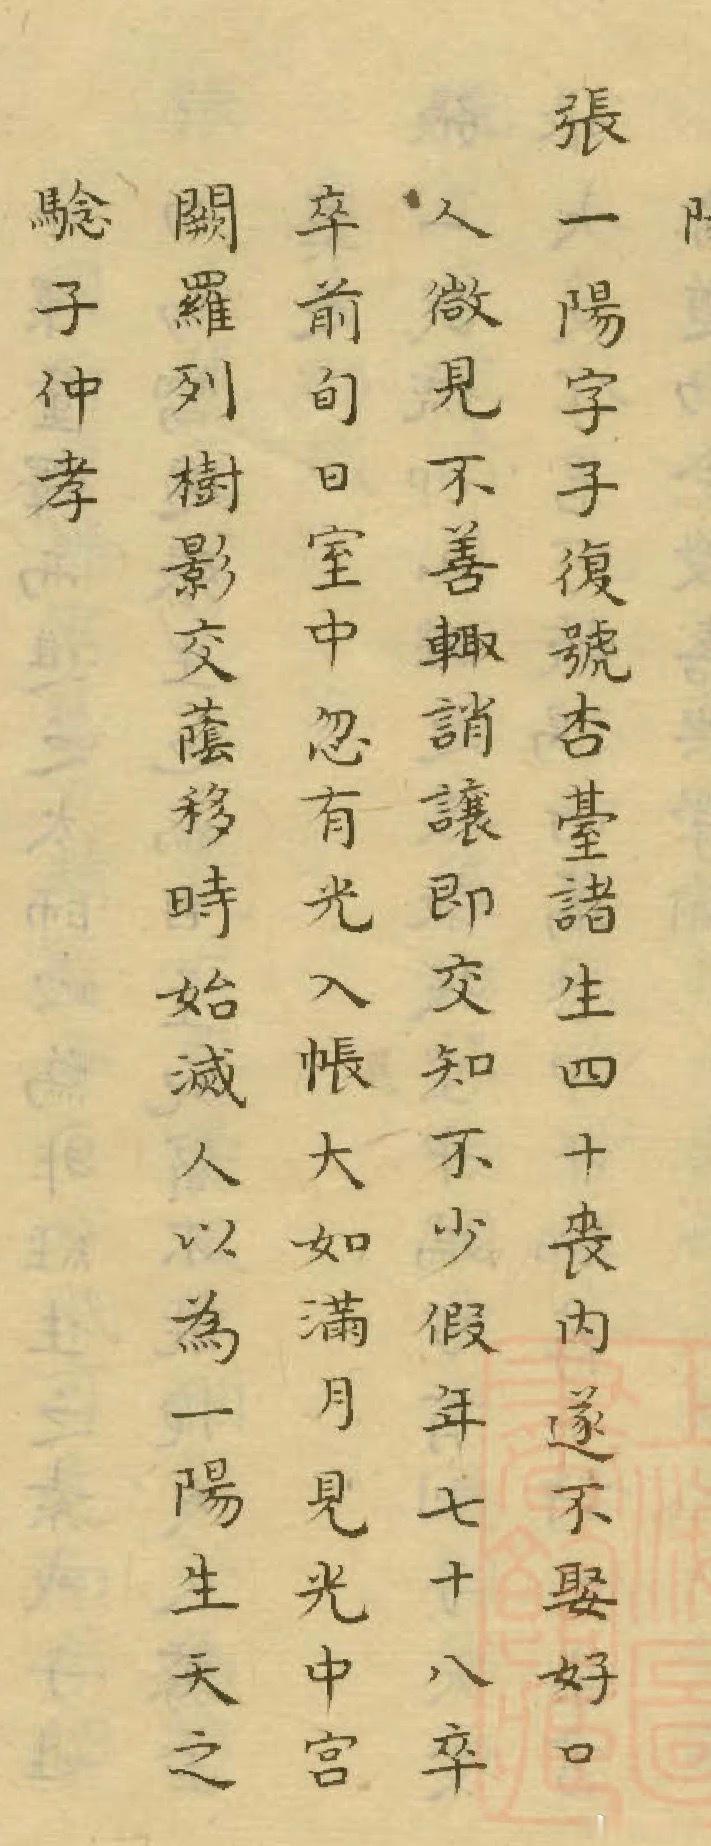 張一陽字子復號杏臺諸生四十喪內遂不娶好口
人微見不善輙誚讓即交知不少假年七十八卒
卒前旬日室中忽有光入帳大如滿月見光中宮
闕羅列樹影交蔭移時始滅人以為一陽生天之
騐子仲孝